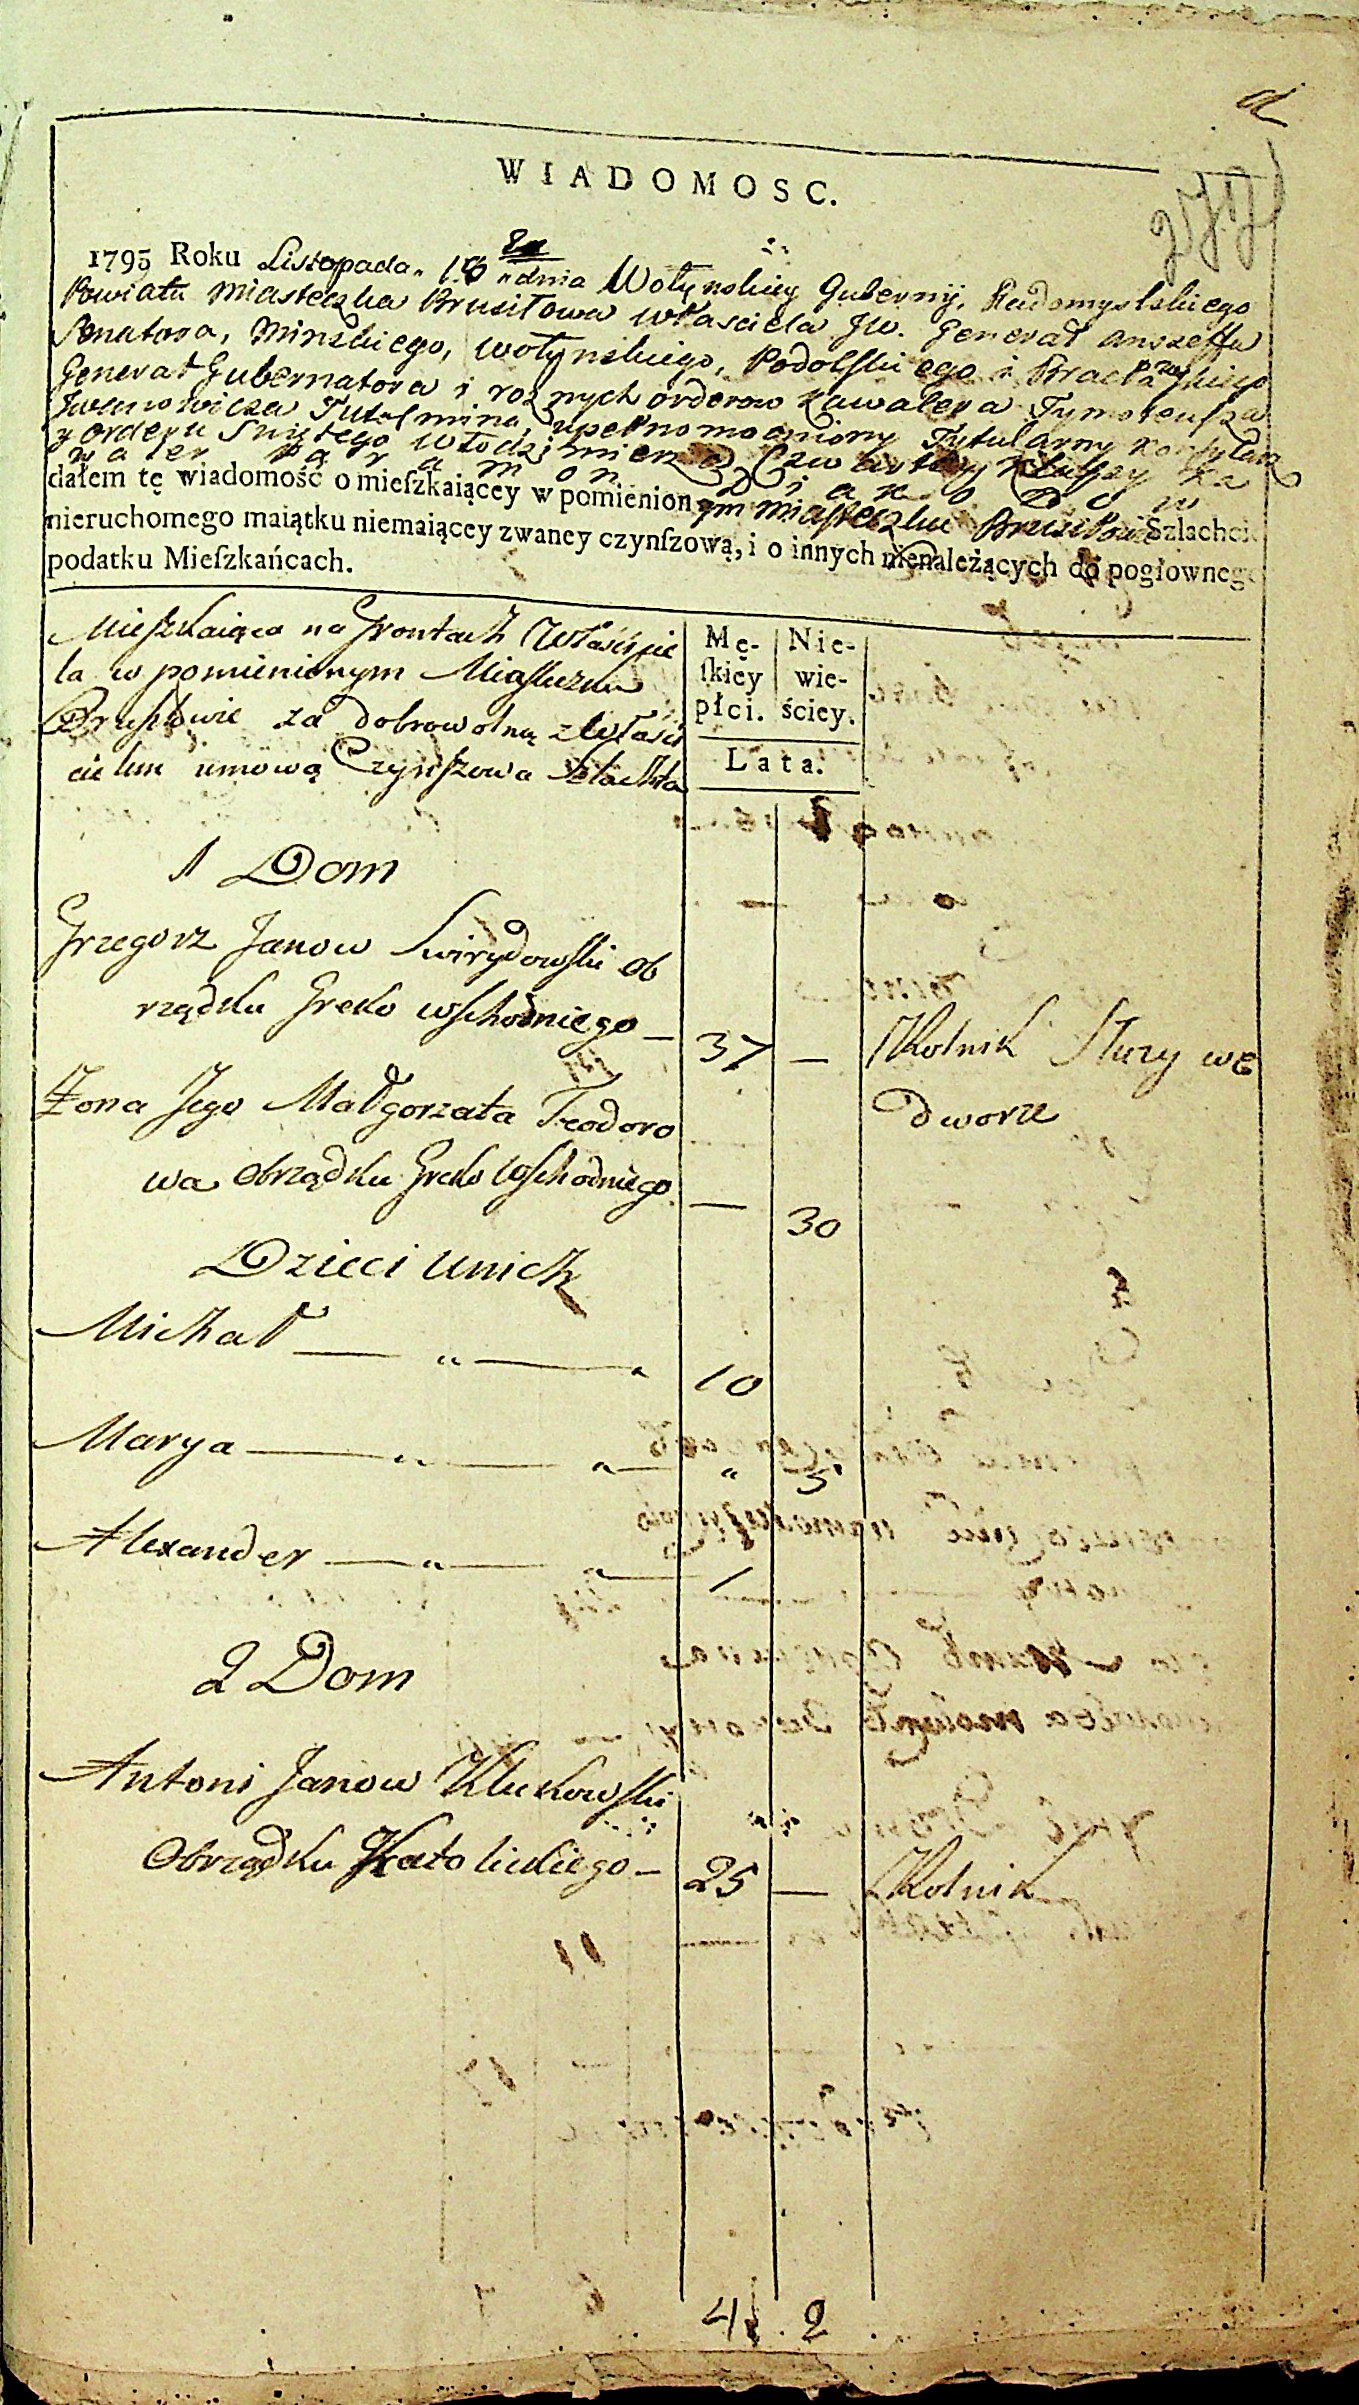 WIADOMOSC.
1795 Roku Listopada dnia Wołynskiey Gubernij, Radomyslskiego
Powiatu Miasteczka Brusiłowa własciela JW. Generał Anszeffa
Senatora, Minskiego, Wołynskiego, Podolskiego i Bracławskiego
Generał Gubernatora i roznych orderow Kawalera Tymoteusza
Iwanowicza Tutolmina, upełnomocniony Tytularny Konsyliarz
y orderu Swiętego Włodzimierza Czwartey Klassy Ka
waler
dałem tę wiadomość o mieſzkaiącey w pomienionym Miasteczku Brusiłowie Szlachcie
nieruchomego maiątku niemaiącey zwaney czynſzową, i o innych nienależących do pogłownego
podatku Mieſzkańcach.
Mieszkaiąca na Grontach Właścicie
la w pomienionym Miasteczku
Brusiłowie za dobrowolną z Właści
cielem umową Czynszowa Szlachta
Mę-
ſkiey
płci.
Nie-
wie-
ściey.
Lata.
1 Dom
Grzegorz Janow Swirydowski ob
rządku Greko wschodniego — 37 — Rolnik Służy we
Żona Jego Małgorzata Teodoro
dworze
wa obrządku Greko wschodniego — 30
Dzieci u nich
Michał — " — " 10
Marya — " — " — " 5
Alexander — " — " — 1
2 Dom
Antoni Janow Klukowski
Obrządku Katolickiego — 25 — Rolnik
4 . 2